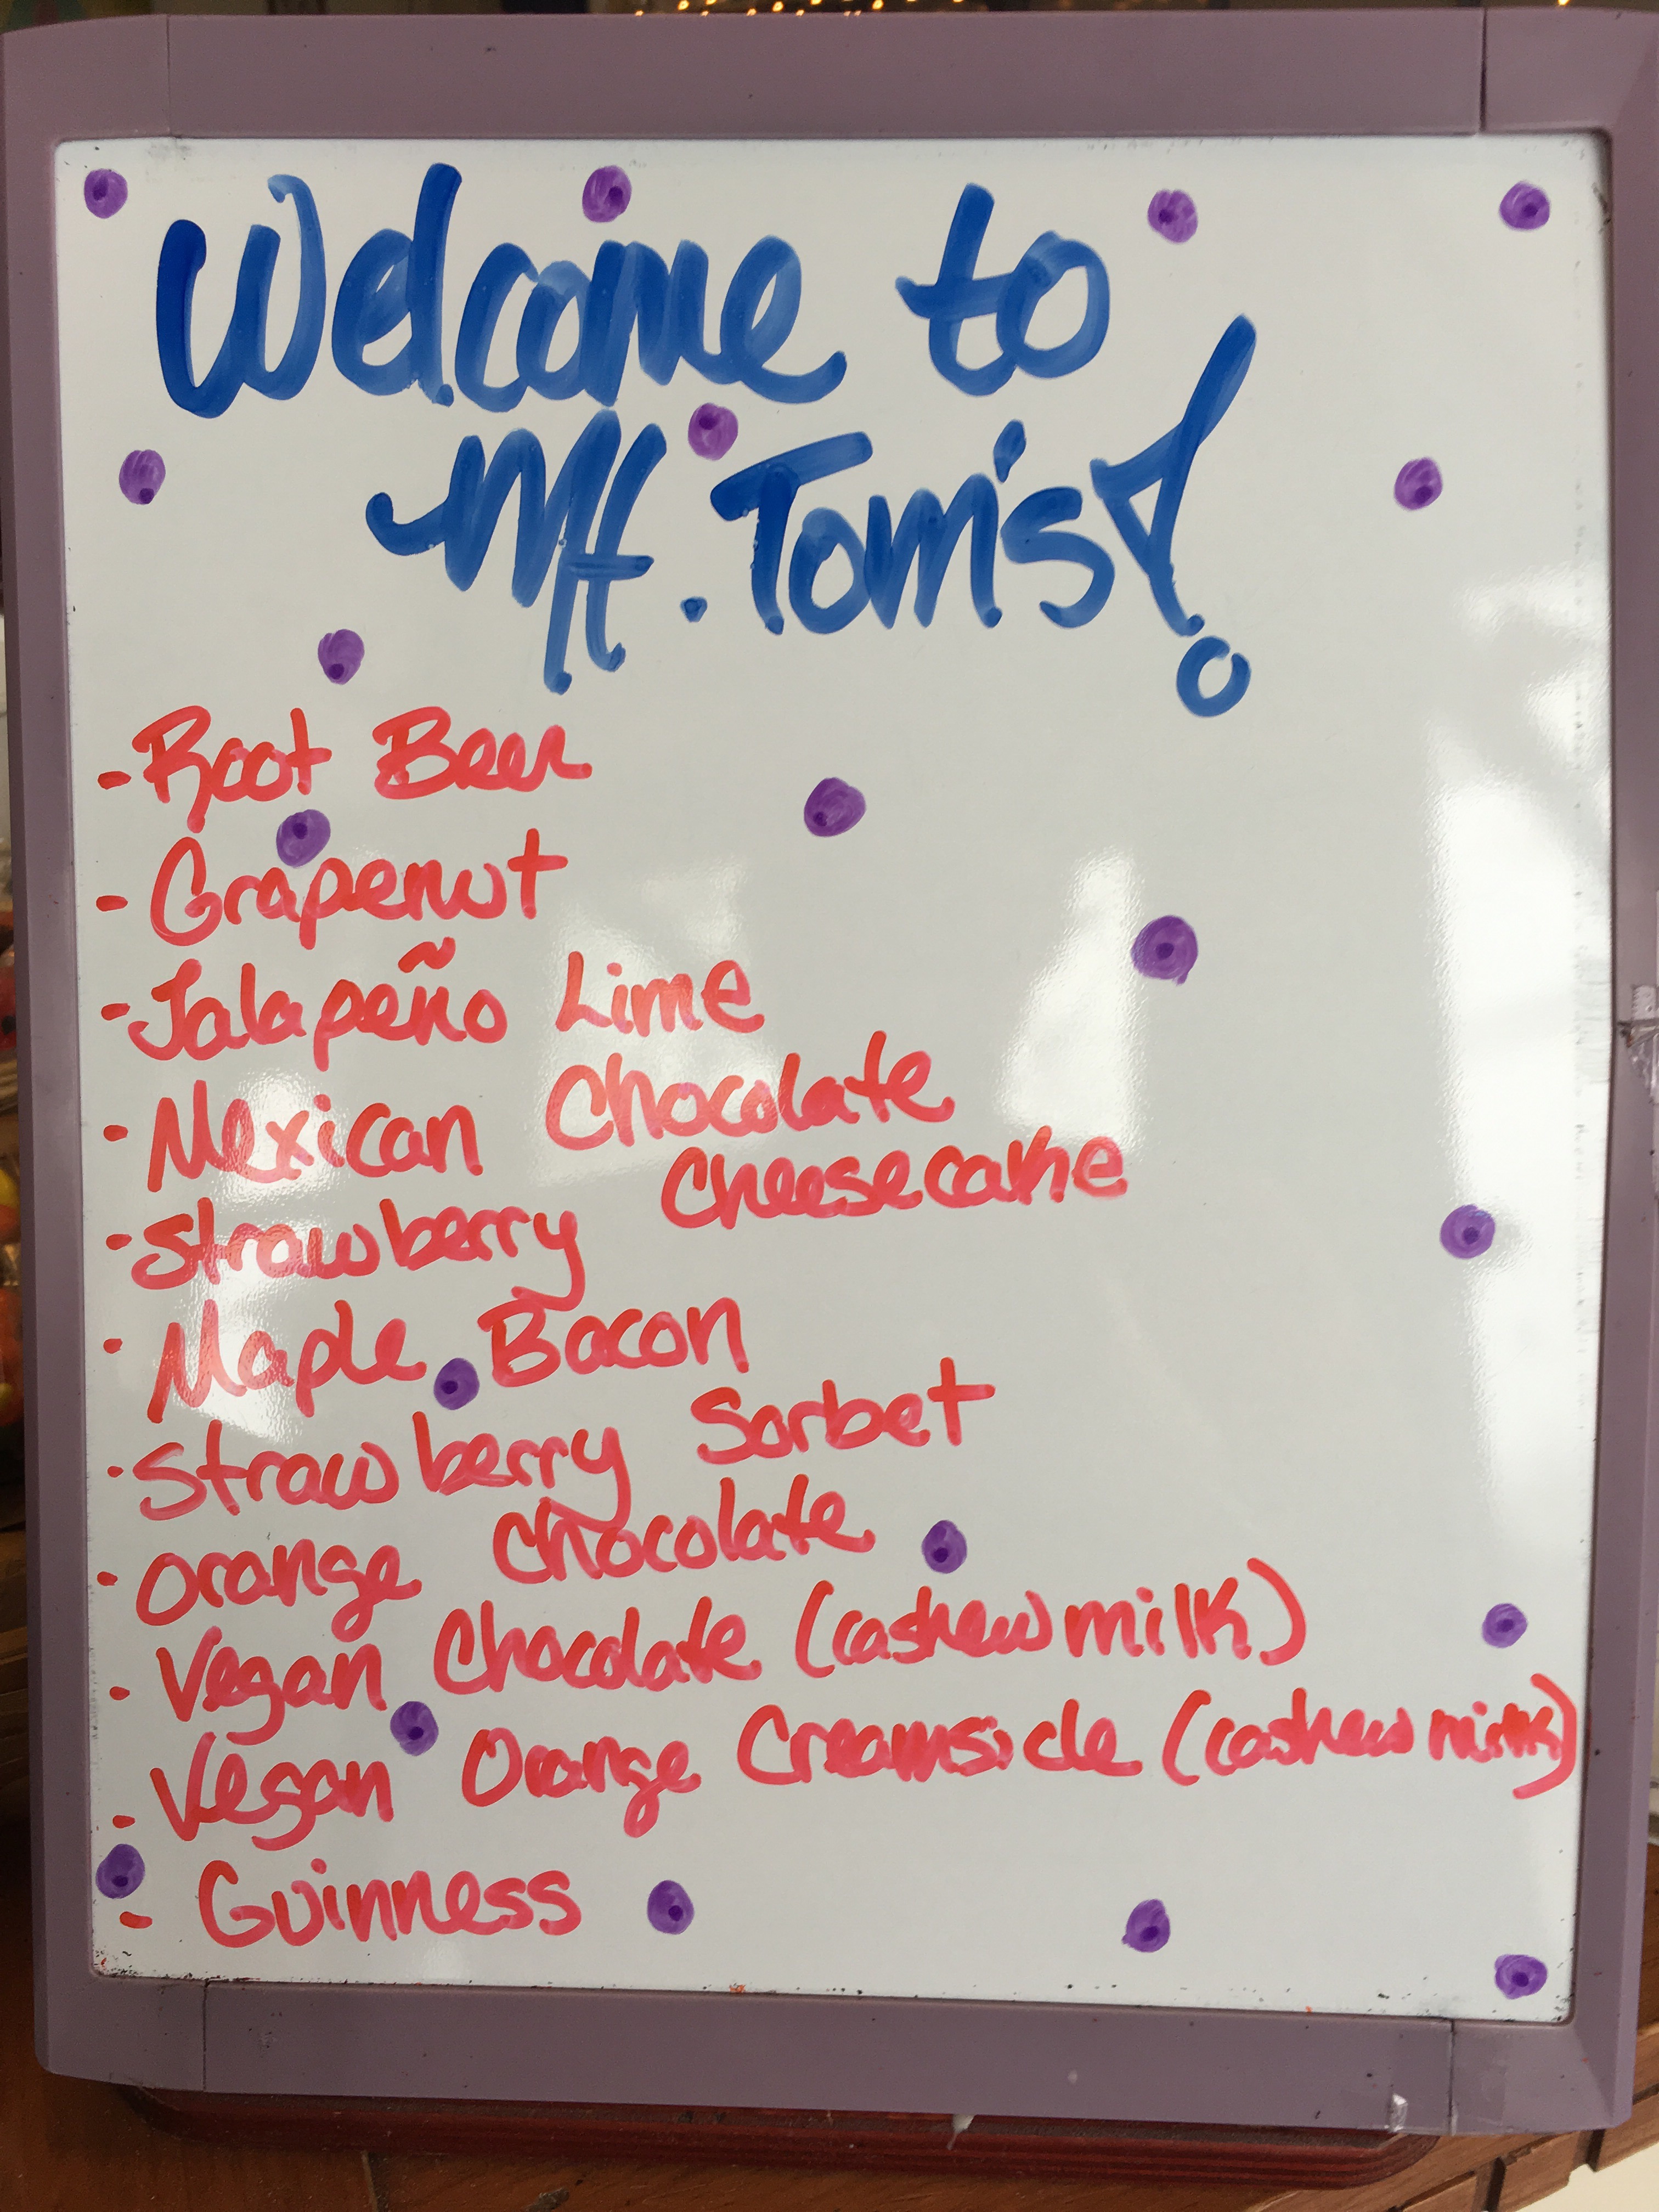 Welcome to
Mt. Tom's!
- Root Beer
- Grapenut
- Jalapeño Lime
- Mexican Chocolate
Cheesecake
- Strawberry
- Maple Bacon
- Strawberry Sorbet
- Orange Chocolate
- Vegan Chocolate (cashew milk)
- Vegan Orange Creamsicle (cashew milk)
- Guinness